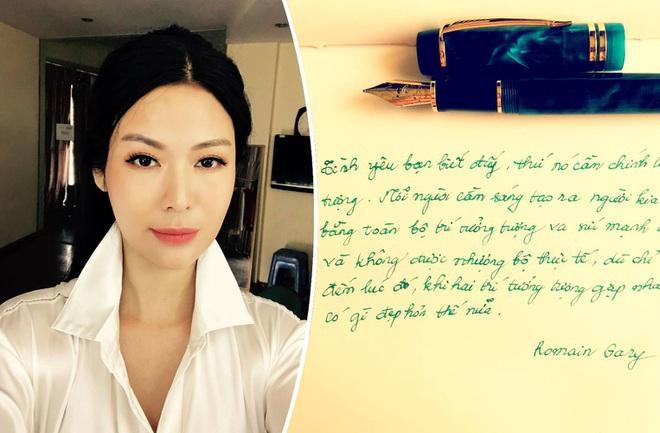 Tình yêu bạn biết đấy, thứ nó cần chính l
tượng. Mỗi người cần sáng tạo ra người kia
bằng toàn bộ trí tưởng tượng và sức mạnh
và không được nhượng bộ thực tế, dù chỉ
đến lúc đó, khi hai trí tưởng tượng gặp nha
có gì đẹp hơn thế nữa.
Romain Gary